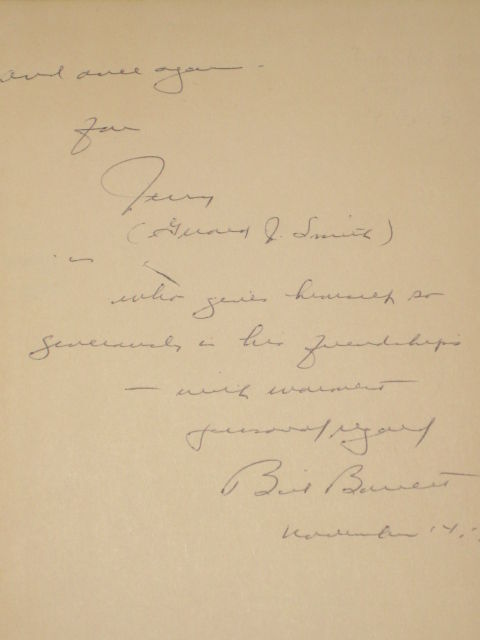 and once again -
for
Jerry
(Gerard J. Smith)
who gives himself so
generously in his friendships
— with warmest
personal regard
Bill Barrett
November 14,